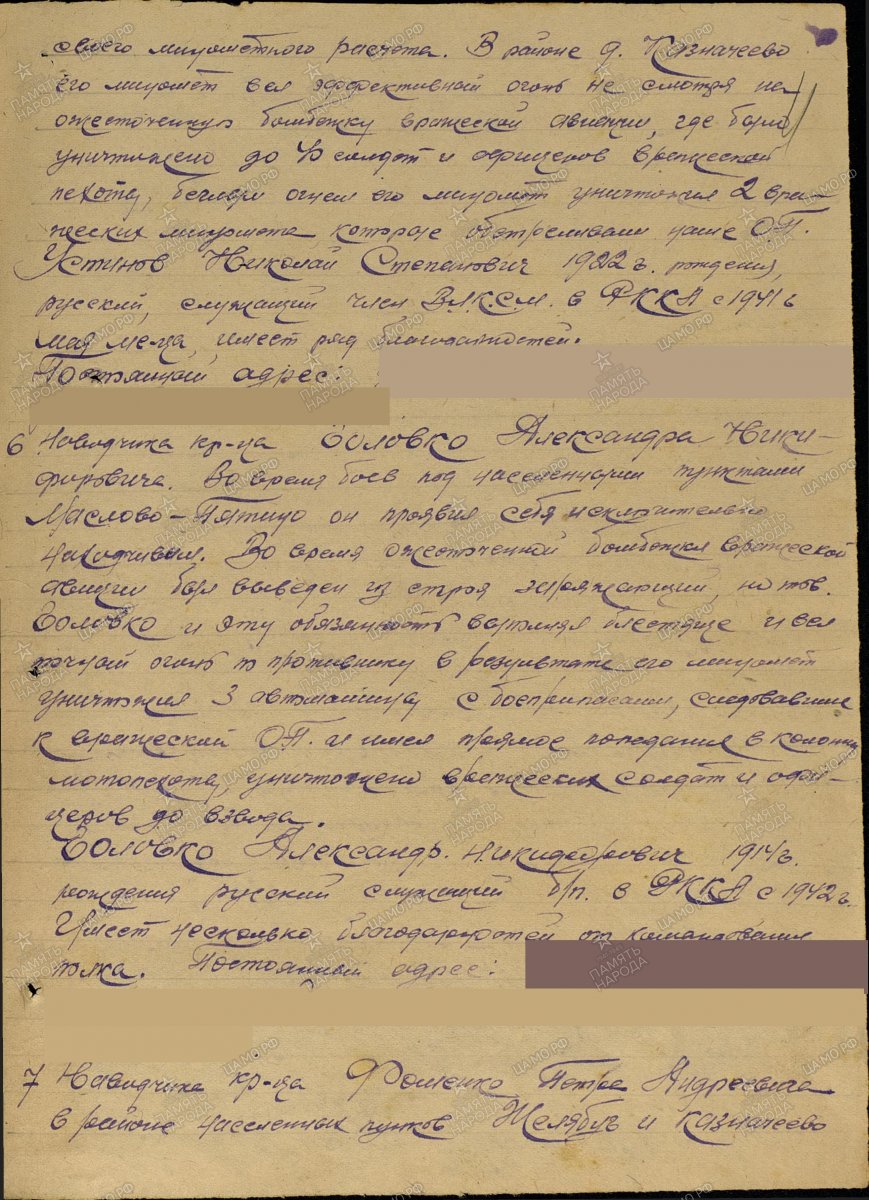 своего минометного расчета. В районе д. Казначеево
его миномет вел эффективный огонь не смотря на
ожесточенную бомбежку вражеской авиации, где было
уничтожено до солдат и офицеров вражеской
пехоты, беглым огнем его миномет уничтожил 2 вра-
жеских миномета которые обстреливали наше О.П.
Устинов Николай Степанович 1922 г. рождения,
русский, служащий член ВЛКСМ. в РККА с 1941 г
мая м-ца, имеет ряд благодарностей.
Постоянный адрес:
6 Наводчика кр-ца Боловко Александра Ники-
форовича. Во время боев под населенными пунктами
Маслово-Пятино он проявил себя исключительно
находчивым. Во время ожесточенной бомбежки вражеской
авиации был выведен из строя заряжающий, но тов.
Боловко и эту обязанность выполнял блестяще и вел
точный огонь по противнику в результате его миномет
уничтожил 3 автомашины с боеприпасами, следовавшие
к вражеской О.П. и имел прямое попадания в колонну
мотопехоты, уничтожено вражеских солдат и офи-
церов до взвода.
Боловко Александр Никифорович 1914 г.
рождения русский служащий б/п. в РККА с 1942 г.
Имеет несколько благодарностей от командования
полка. Постоянный адрес:
7 Наводчика кр-ца Фоменко Петра Андреевича
в районе населенных пунктов Желябуг и Казначеево